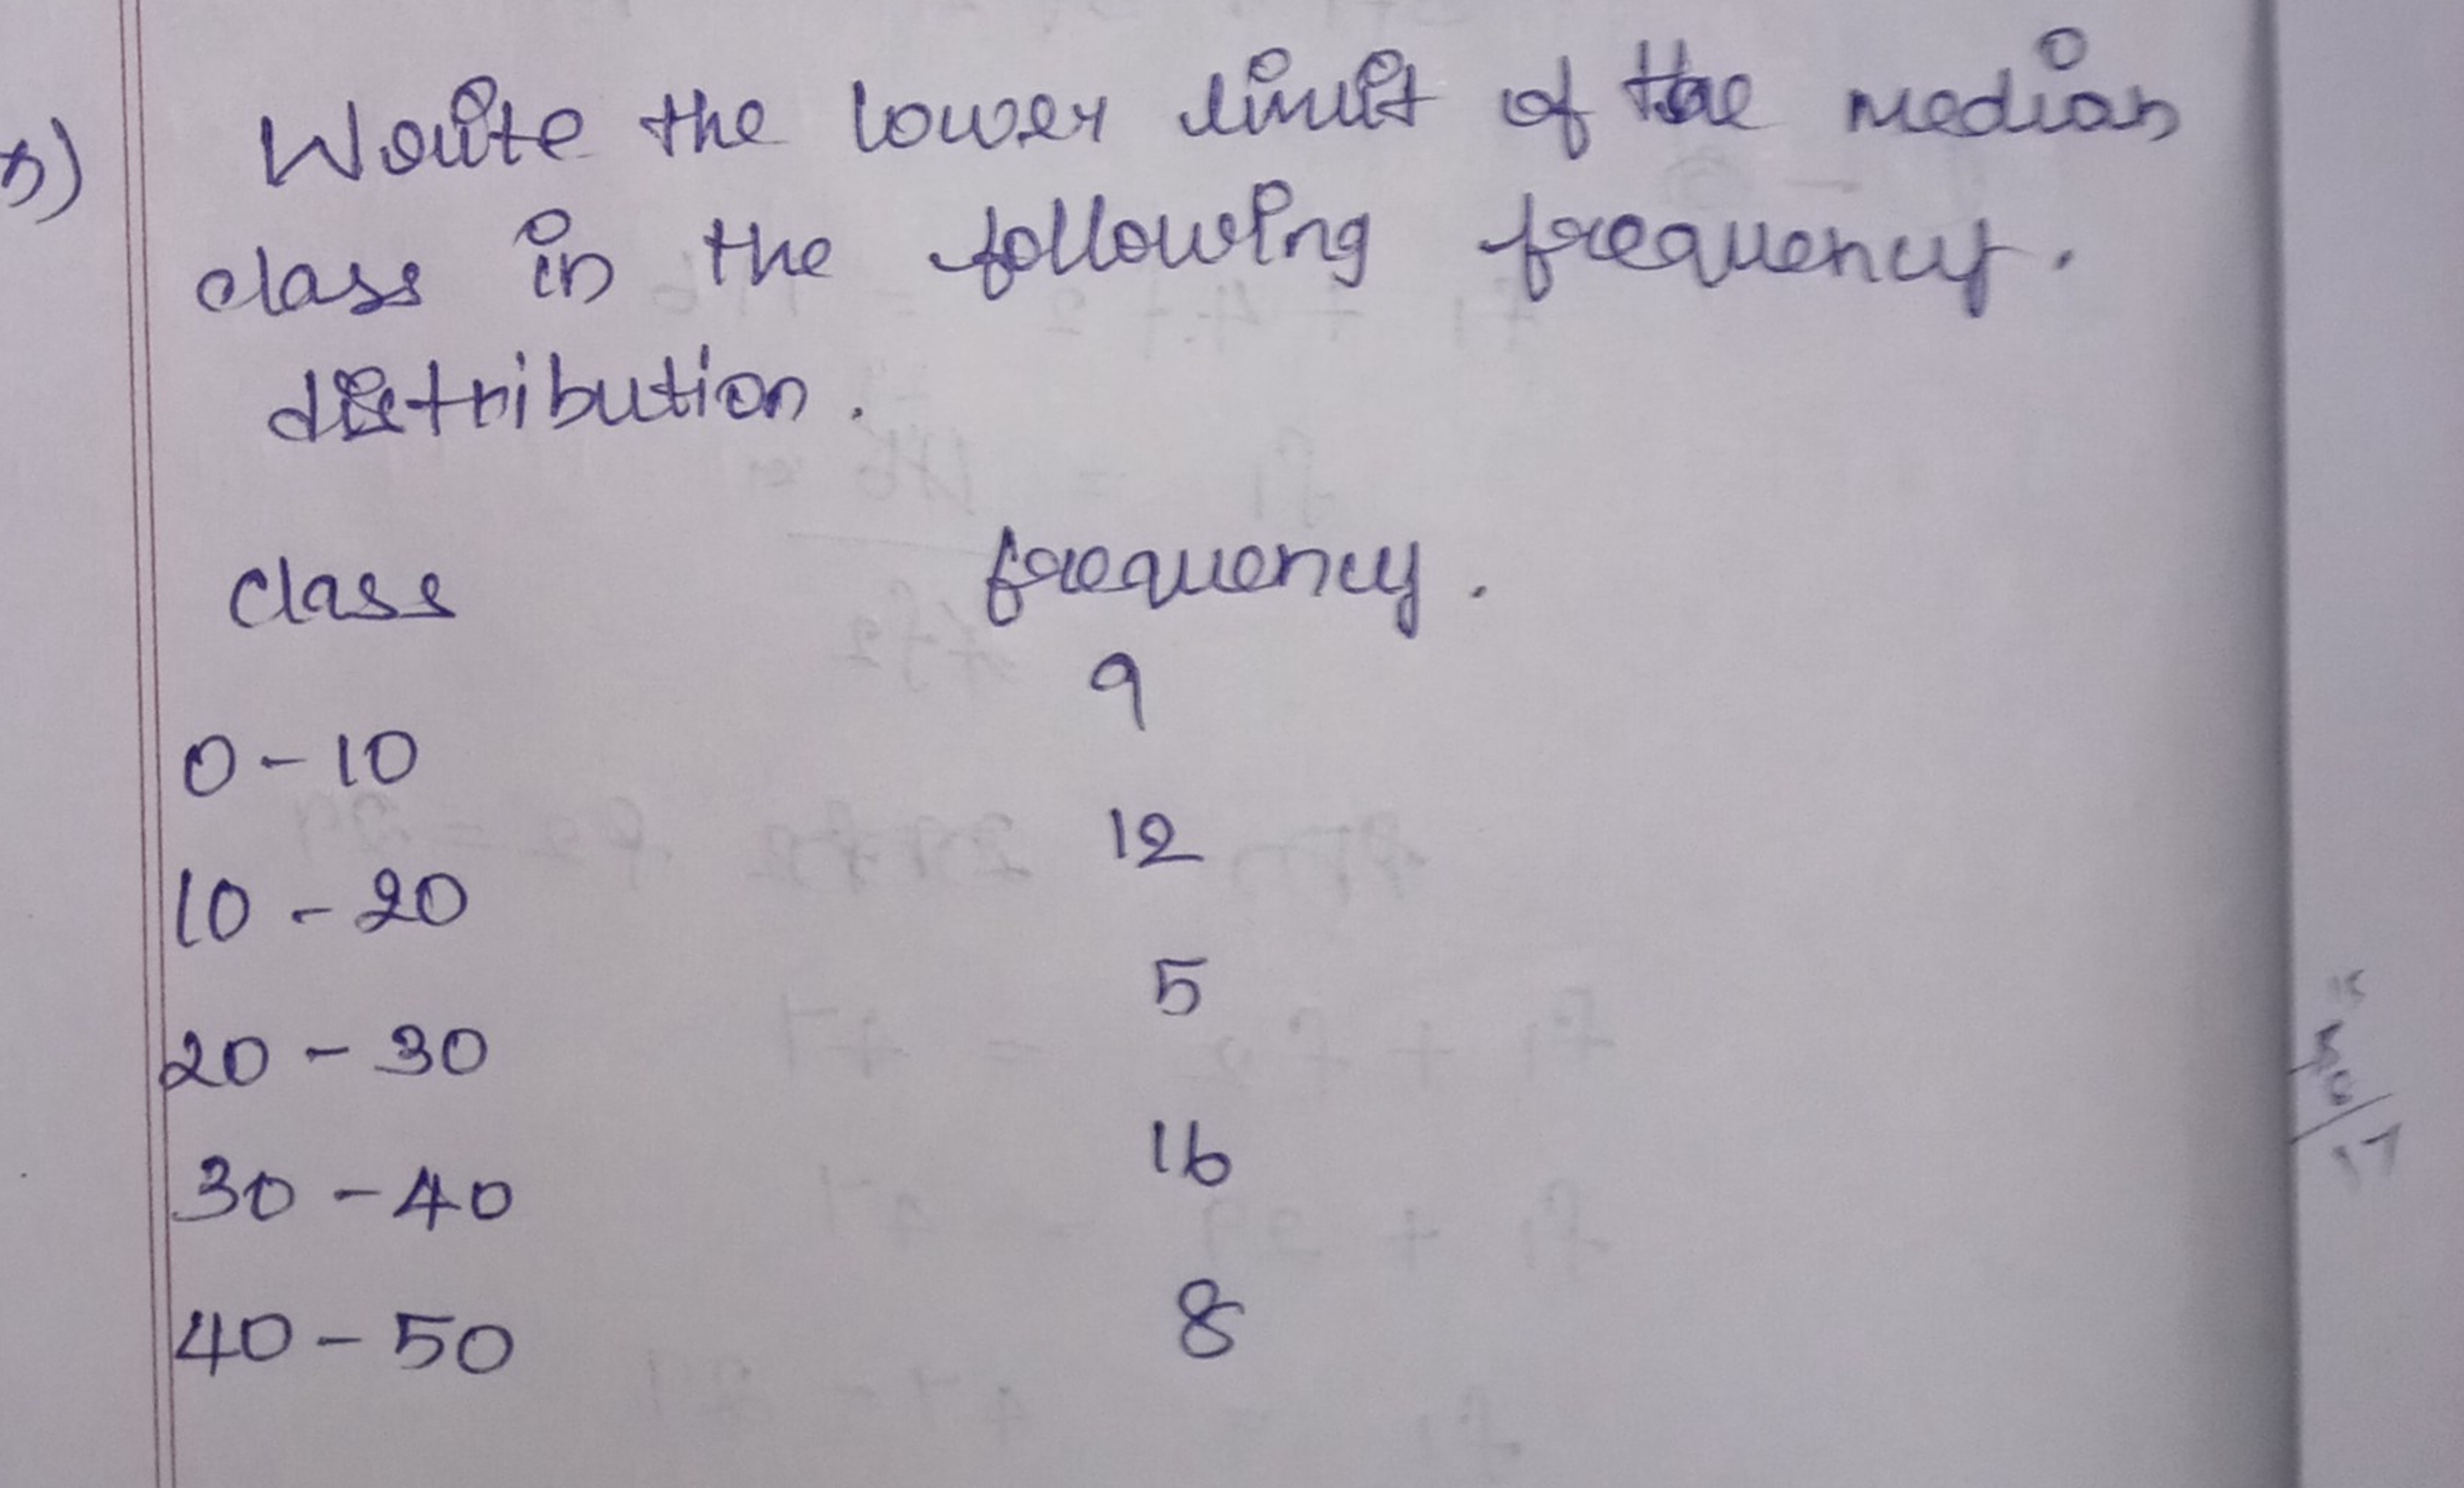 Write the lower limit of the median
class in the following frequency.
distribution.
class frequency.
9
0-10
12
10-20
5
20-30
16
30-40
8
40-50
17